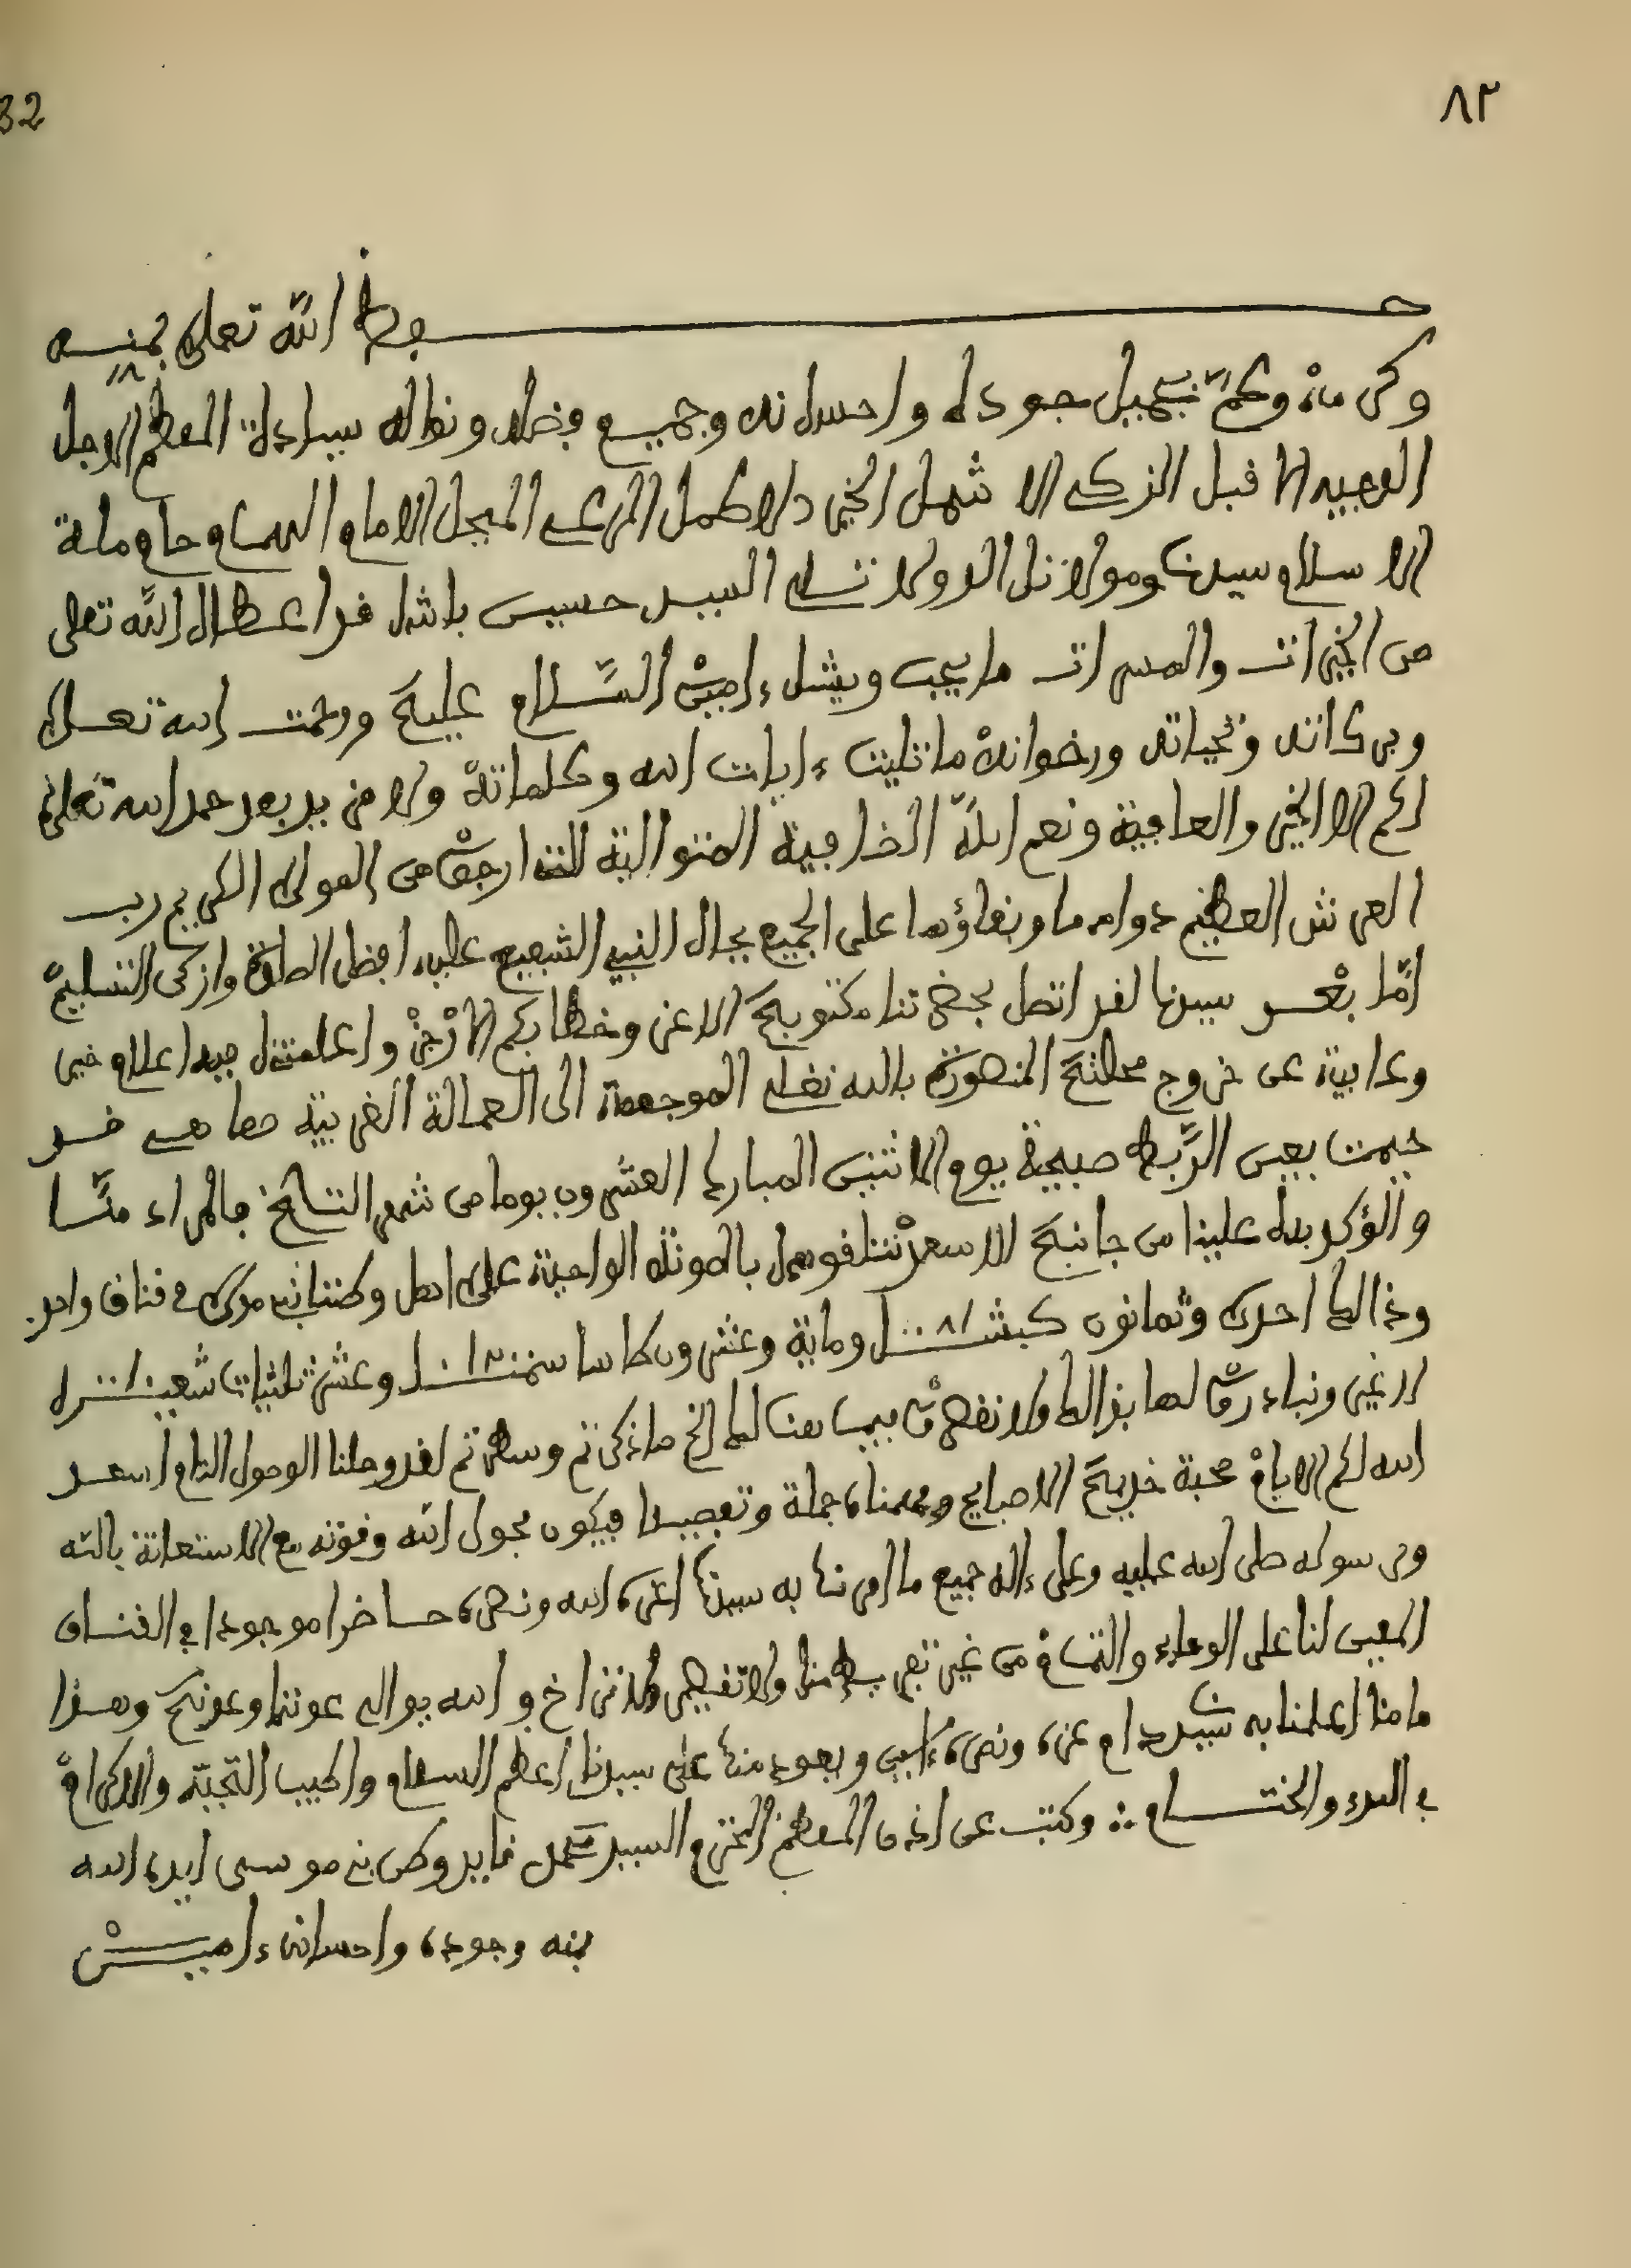 ٨٢
32
حفظ الله تعلى بمنه
وكرمه وعمّ بجميل جوده واحسانه وجميع فضله ونواله سيادة المعظم الاجل
الوجيه الاقبل الزكي الاشمل الخير الاكمل المرعي المبجل الامام الهمام حامي ملة
الاسلام سيدنا ومولانا الدولاتلي السيد حسين باشا قد اعطاه الله تعلى
من الخيرات والمسرات ما يحب ويشا ءامين السّلام عليكم ورحمت الله تعلى
وبركاته وتحياته ورضوانه ما تليت ءايات الله وكلماته ولا من يد بعد حمد الله تعلى
لكم الا الخير والعافية ونعم الله الضافية المتوالية من المولى الكريم رب
العرش العظيم دوامها وبقاؤها على الجميع بجاه النبي الشفيع عليه افضل الصلاة وازكى التسليم
امّا بعد سيدنا لقد اتصل بحضرتنا مكتوبكم الاعز وخطابكم الارجز واعلمتنا فيه اعلام خير
وعافية عن خروج محلتكم المنصورة بالله تعلى الموجهة الى العمالة الغربية هي قد
خيمت بعين الرّبط صبيحة يوم الاثنين المبارك العشرون يوما من شهر التاريخ فالمراد منّا
والمؤكد به علينا من جانبكم الاسعد نتلقوها بالمونة الواجبة على اهل وطننا في قناق واحد
وذالك احدى وثمانون كبشا ٨١ وماية وعشرون كاسا سمنا ١٢٠ وعشر ثلثيات شعير ١٠
لا غير لها بذالك ولا نقصر فيما هنالك الخ ما ذكرتم وسطرتم لقد وصلنا الوصول التام اسعد
الله لكم الايام صحبة خديمكم الاصبايحي وفهمناه جملة وتفصيلا فيكون بحول الله وقوته مع الاستعانة بالله
ورسوله صلى الله عليه وعلى ءاله جميع ما امرتنا به سيدنا اعزه الله ونصره حاضرا موجودا في القناق
المعين لنا على الوفاء والتمام من غير تفريط منا ولا تقصير ولا تراخ والله يوالي عوننا وعونكم وهذا
ما منا اعلمنا به سيدي دام عزه ونصره ءامين ويعود منا على سيدنا اعظم السلام واطيب التحية والاكرام
في البدء والختام وكتب عن اذن المعظم المحترم السيد محمد قايد وطن بني موسى ايده الله
بمنه وجوده واحسانه ءامين